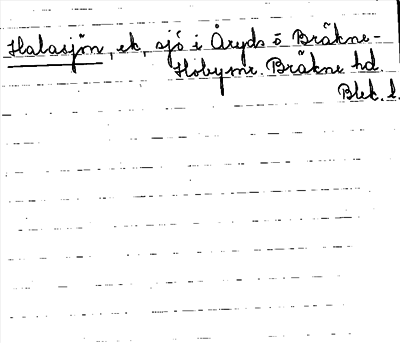 Halasjön, ek, sjö i Åryds o Bräkne-
Hoby snr. Bräkne hd.
Blek. l.